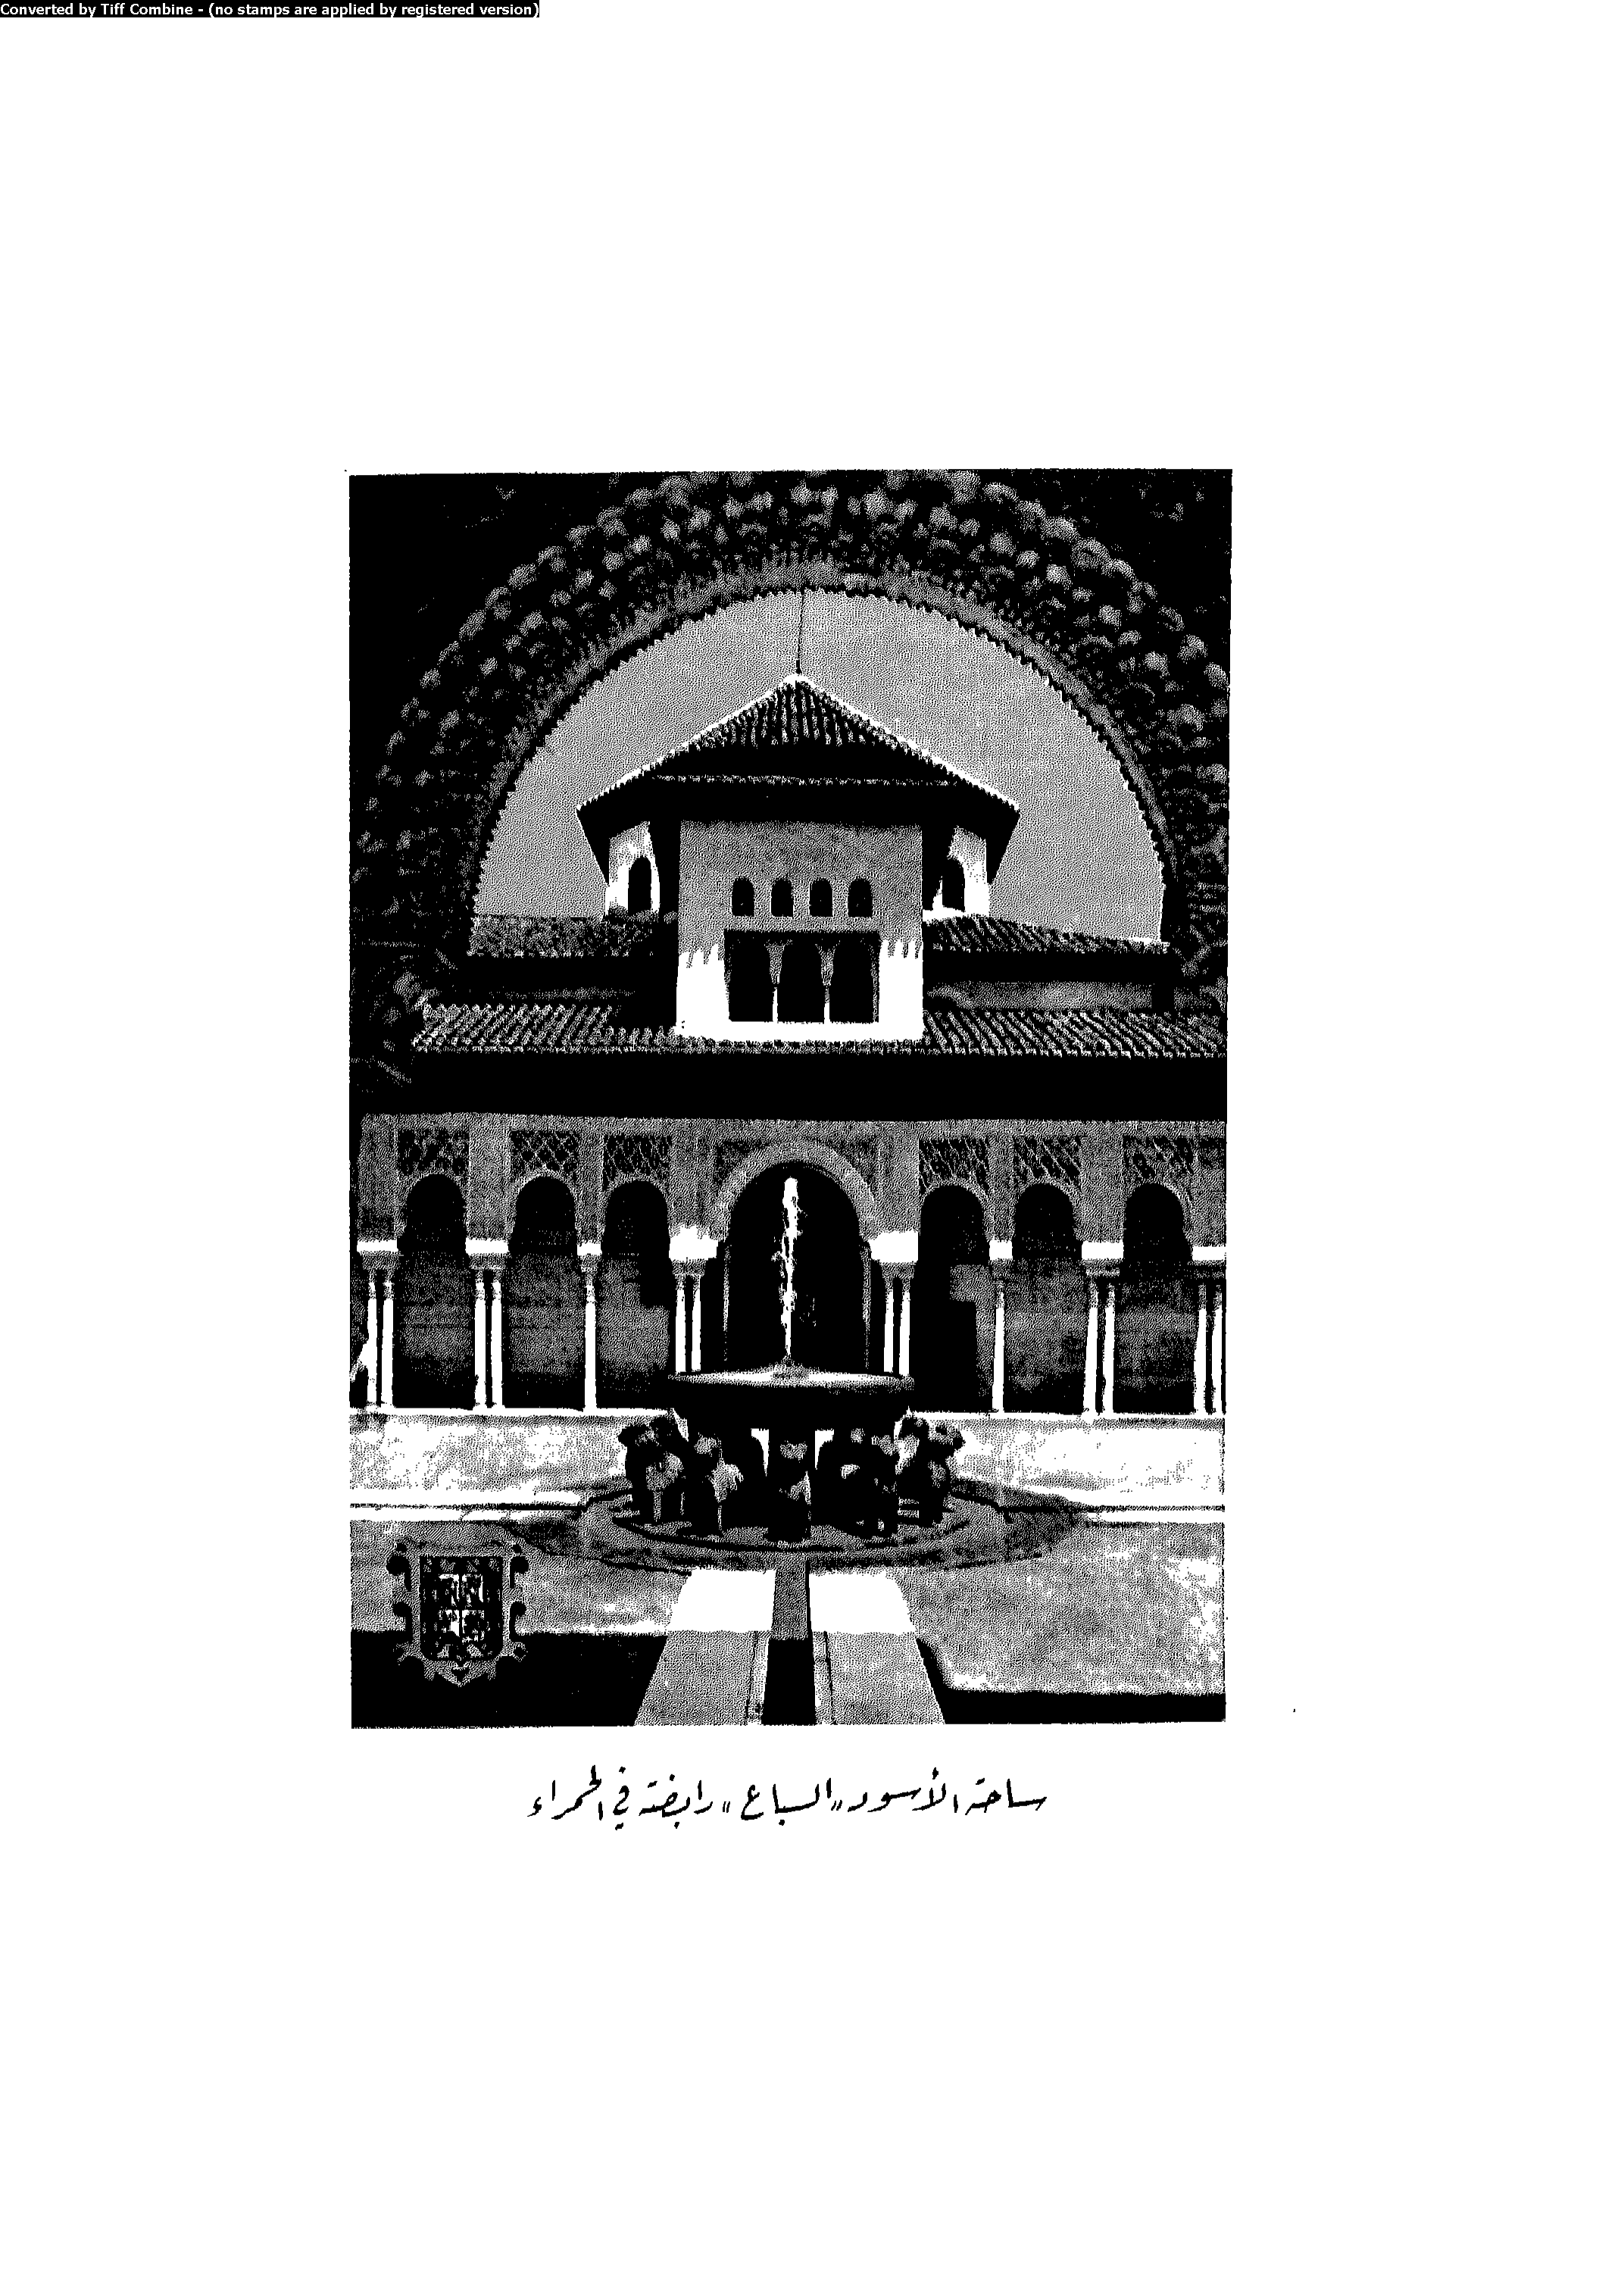 Converted by Tiff Combine - (no stamps are applied by registered version)
ساحة الأسود "السباع" رابضة في الحمراء